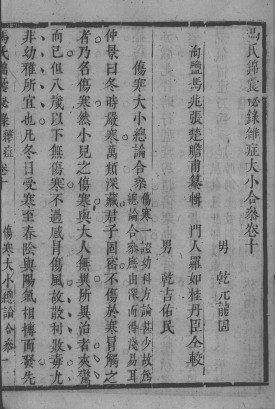 馮氏錦囊秘錄雜症大小合參卷十
海鹽馮兆張楚瞻甫纂輯　門人羅如桂丹臣仝較
男　乾元龍田
男　乾吉佑民
傷寒大小總論合參
傷寒一證幼科方論甚少故爲
總論合參庶由深而得淺易耳
仲景曰冬時嚴寒萬類深藏君子固密不傷於寒且觸之
者乃名傷寒然小兒之傷寒與大人無異所與治者夾驚
而已但八歲以下無傷寒不過感冒傷風故散利敗毒尤
非幼稚所宜也凡冬日受寒至春陰與陽氣相摶而發先
馮氏錦囊秘錄雜症　卷十
傷寒大小總論合參　一